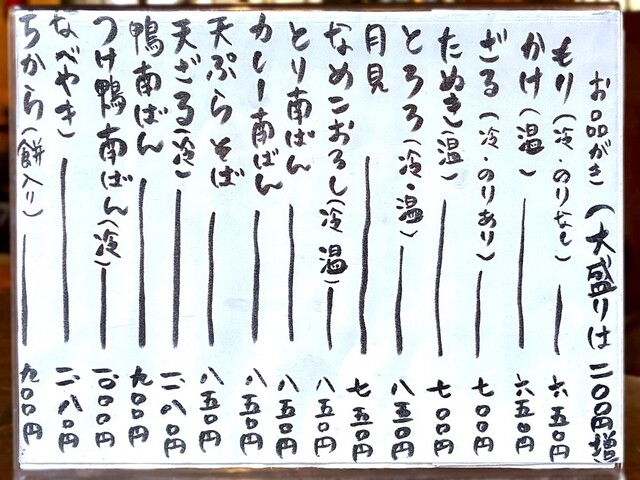 お品がき (大盛りは二〇〇円増)
もり(冷・のりなし) 六五〇円
かけ(温) 六五〇円
ざる(冷・のりあり) 七〇〇円
たぬき(温) 七〇〇円
とろろ(冷・温) 八五〇円
月見 七五〇円
なめこおろし(冷 温) 八五〇円
とり南ばん 八五〇円
カレー南ばん 八五〇円
天ぷらそば 八五〇円
天ざる(冷) 一、一八〇円
鴨南ばん 九〇〇円
つけ鴨南ばん(冷) 一、〇〇〇円
なべやき 一、一八〇円
ちから(餅入り) 九〇〇円